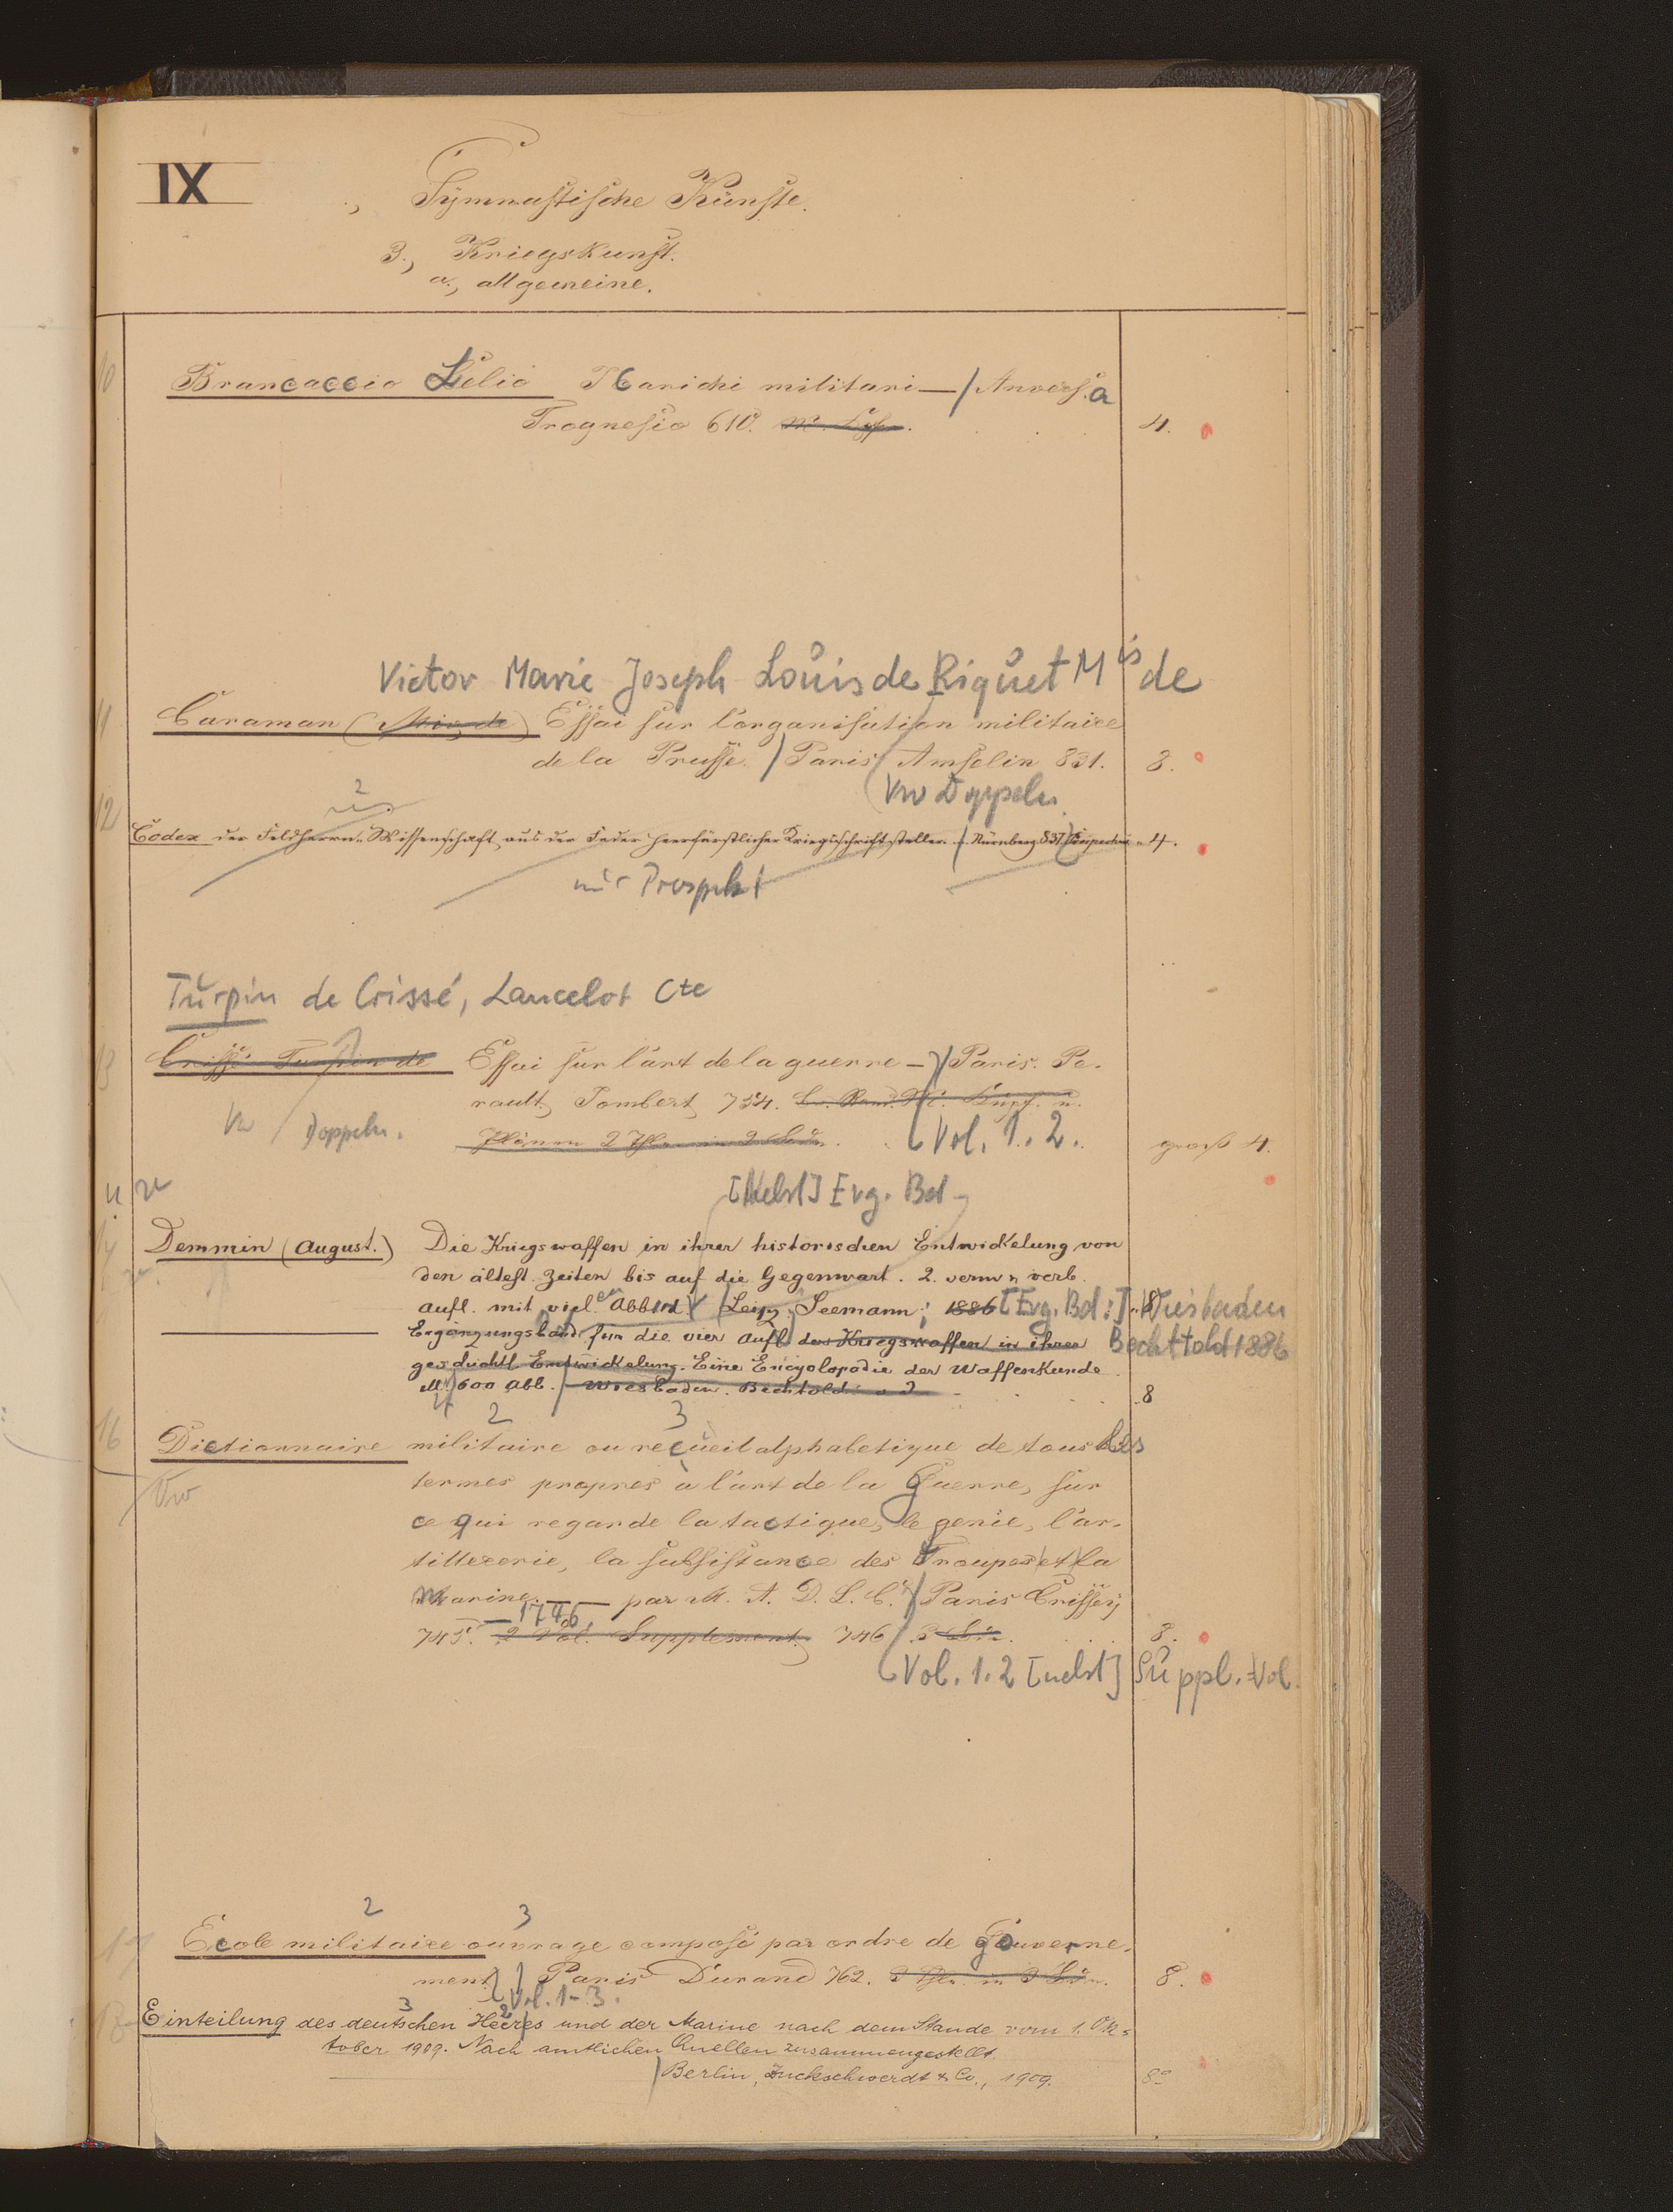 IX
Gymnastische Künste.
3., Kriegskunst.
a., allgemeine.
10
Brancaccio Lelio I Carichi militari — / Anversa
Trognesio 610. 4.
Victor Marie Joseph Louis de Riquet Mis de
11
Caraman (Mis de) Essai sur l'organisation militaire
de la Prusse. / Paris Anselin 831. 8.
Vw Doppeln
12
2
Codex der Feldherrn-Wissenschaft aus der Feder heerfürstlicher Kriegsschriftsteller. Nürnberg 837. 4.
mit Prospekt
Turpin de Crissé, Lancelot Cte
13
Crissé Turpin de Essai sur l'art de la guerre — / Paris. Pe-
rault, Jombert 754.
Vw Doppeln. Vol. 1. 2. groß 4.
[Nebst] Erg. Bd
14
Demmin (August.) Die Kriegswaffen in ihrer historischen Entwickelung von
den ältest. Zeiten bis auf die Gegenwart. 2. verm u verb.
Aufl. mit viel en Abbild / Leipz. Seemann; 1886 [Erg. Bd:] Wiesbaden
Ergänzungsband für die vier Aufl. der Kriegswaffen in ihrer Bechttold 1886
geschichtl Entwickelung. Eine Encyclopädie der Waffenkunde
M. 600 Abb. / Wiesbaden. Bechtold 8
16
2 3
Dictionnaire militaire ou recueil alphabetique de tous les
termes propres a l'art de la Guerre, sur
Vw
ce qui regarde la tactique, le genie, l'ar-
tillererie, la subsistance des Troupes et la
Marine. — par M. A. D. L. C. / Paris Grissey
745. — 1746, 2 Vol. Supplement 746 8.
Vol. 1. 2 [nebst] Suppl.=Vol.
2 3
17
Ecole militaire ouvrage composé par ordre de gouverne-
ment / Paris Durand 762. 8.
Vol. 1-3.
3 2
18
Einteilung des deutschen Heeres und der Marine nach dem Stande vom 1. Ok-
tober 1909. Nach amtlichen Quellen zusammengestellt.
/ Berlin, Zuckschwerdt & Co., 1909. 8°